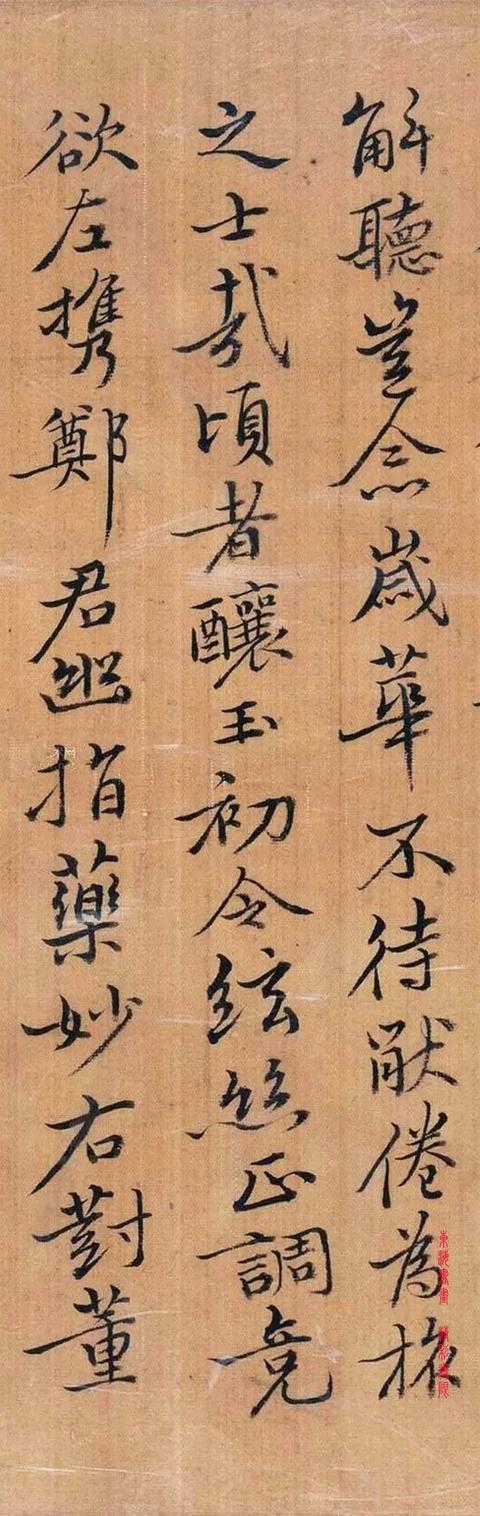 解聽豈念歳華不待猒倦為旅
之士哉頃者釀玉初令絃絲正調竟
欲左携鄭君幽指藥妙右對董